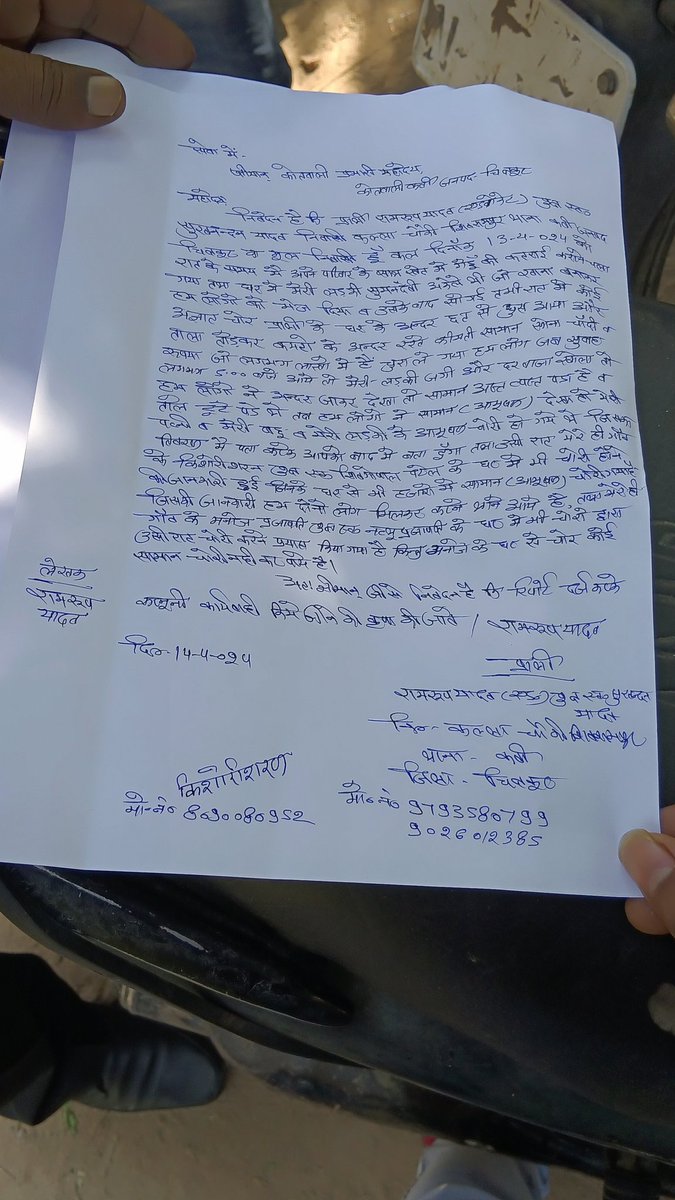 सेवा में,
श्रीमान् कोतवाली प्रभारी महोदय
कोतवाली कर्वी जनपद चित्रकूट
महोदय
निवेदन है कि प्रार्थी रामरूप यादव पुत्र स्व०
यादव निवासी थाना कर्वी जनपद
चित्रकूट का मूल निवासी है कल दिनाँक 13-4-024 को
रात के समय मैं अपने परिवार के साथ खेत में गेहूँ की कतराई कराने चला
गया था घर में मेरी लडकी अकेले थी जो खाना बनाकर
हम लोगों को भेज दिया व उसके बाद सो गई तभी रात में कोई
अज्ञात चोर प्रार्थी के घर के अन्दर छत से घुस आया और
ताला तोडकर कमरों के अन्दर रखे कीमती सामान सोना चाँदी व
रूपया जो लगभग लाखों में है चुरा ले गया हम लोग जब सुबह
लगभग 5:00 बजे आये तो मेरी लडकी जगी और दरवाजा खोला तो
हम लोगों ने अन्दर जाकर देखा तो सामान अस्त व्यस्त पडा है व
टूटे पडे थे तब हम लोगों ने सामान (आभूषण) देखा तो मेरी
पत्नी व मेरी बहू व मेरी लडकी के आभूषण चोरी हो गये थे जिसका
विवरण मैं पता करके आपको बाद में बता दूँगा तथा उसी रात मेरे ही गाँव
के किशोरीशरन पुत्र स्व० पटेल के घर में भी चोरी होने
की जानकारी हुई जिनके घर से भी हजारों में सामान (आभूषण) चोरी
जिसकी जानकारी हम दोनों लोग मिलकर करने थाने आये है, तथा मेरे ही
गाँव के मनोज प्रजापति पुत्र प्रजापति के घर में भी चोरों द्वारा
उसी रात चोरी करने प्रयास किया गया है किन्तु मनोज के घर से चोर कोई
सामान चोरी नही कर पाये है।
अतः श्रीमान् जी से निवेदन है कि रिपोर्ट दर्ज करके
कानूनी कार्यवाही किये जाने की कृपा की जावे। रामरूप यादव
लेखक
रामरूप
यादव
दि०-14-4-024
प्रार्थी
रामरूप यादव पुत्र स्व०
यादव
नि०-
थाना - कर्वी
जिला - चित्रकूट
किशोरीशरण
मो०नं० 8090080952
मो०नं० 9793580799
9026012385